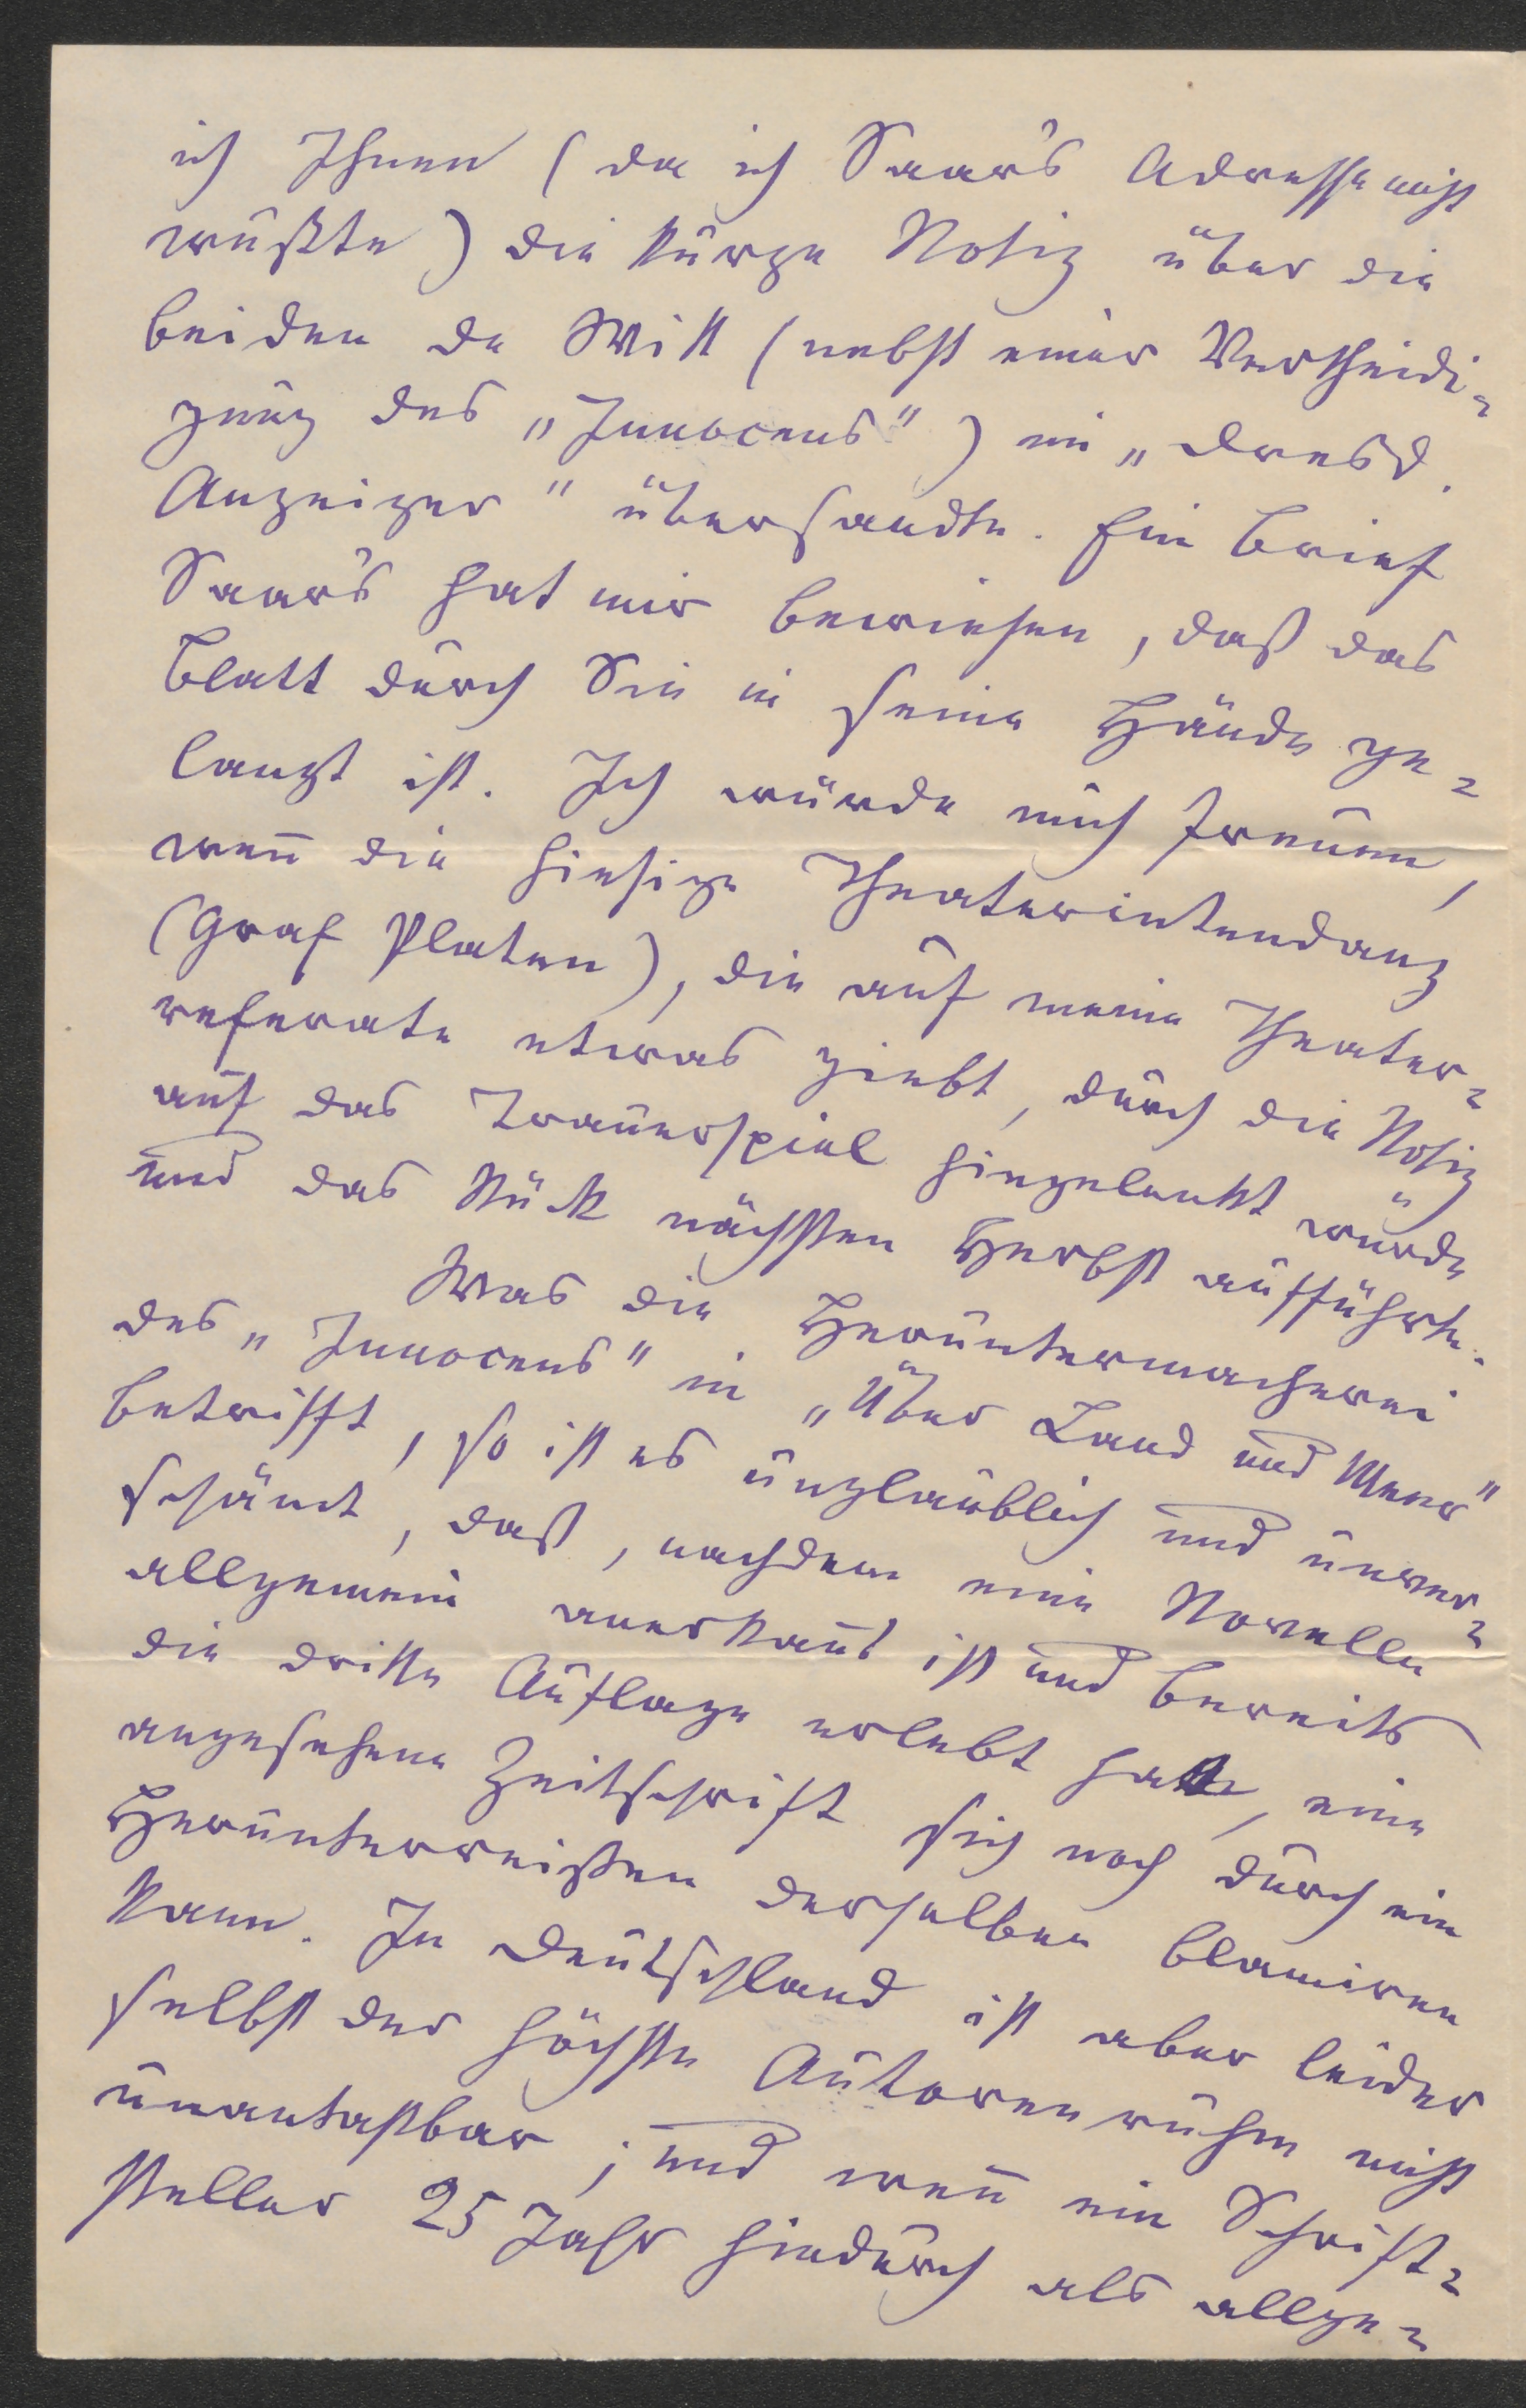 ich Ihnen (da ich Saar's Adresse nicht
wußte) die kurze Notiz über die
beiden de Witt (nebst einer Vertheidi-
gung des „Innocens") im „Dresd.
Anzeiger" übersandte. Ein Brief
Saar's hat mir bewiesen, daß das
Blatt durch Sie in seine Hände ge-
langt ist. Ich würde mich freuen,
weñ die hiesige Theaterintendanz
(Graf Platen), die auf meine Theater-
referate etwas giebt, durch die Notiz
auf das Trauerspiel hingelenkt würde
und das Stück nächsten Herbst aufführte.
Was die Heruntermacherei
des „Innocens" in „Über Land und Meer"
betrifft, so ist es unglaublich und unver-
schämt, daß, nachdem eine Novelle
allgemein anerkañt ist und bereits
die dritte Auflage erlebt hat, eine
angesehene Zeitschrift sich noch durch ein
Herunterreißen derselben blamiren
kann. In Deutschland ist aber leider
selbst der höchste Autorenruhm nicht
unantastbar; und weñ ein Schrift-
steller 25 Jahr hindurch als allge-